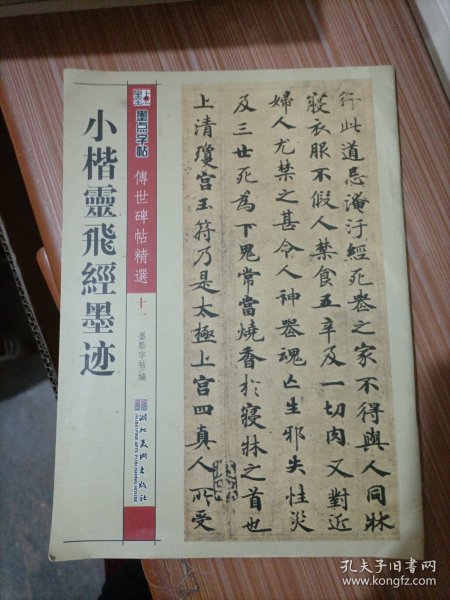 小楷靈飛經墨迹
墨点字帖
傳世碑帖精選
十一
墨點字帖/編
湖北美術出版社
HUBEI FINE ARTS PUBLISHING HOUSE
行此道忌淹汙經死喪之家不得與人同牀
殷衣服不假人禁食五辛及一切肉又對近
婦人尤禁之甚令人神喪魂亡生邪失性災
及三世死為下鬼常當燒香於寢牀之首也
上清瓊宫玉符乃是太極上宫四真人所受
孔夫子旧书网
www.kongfz.com